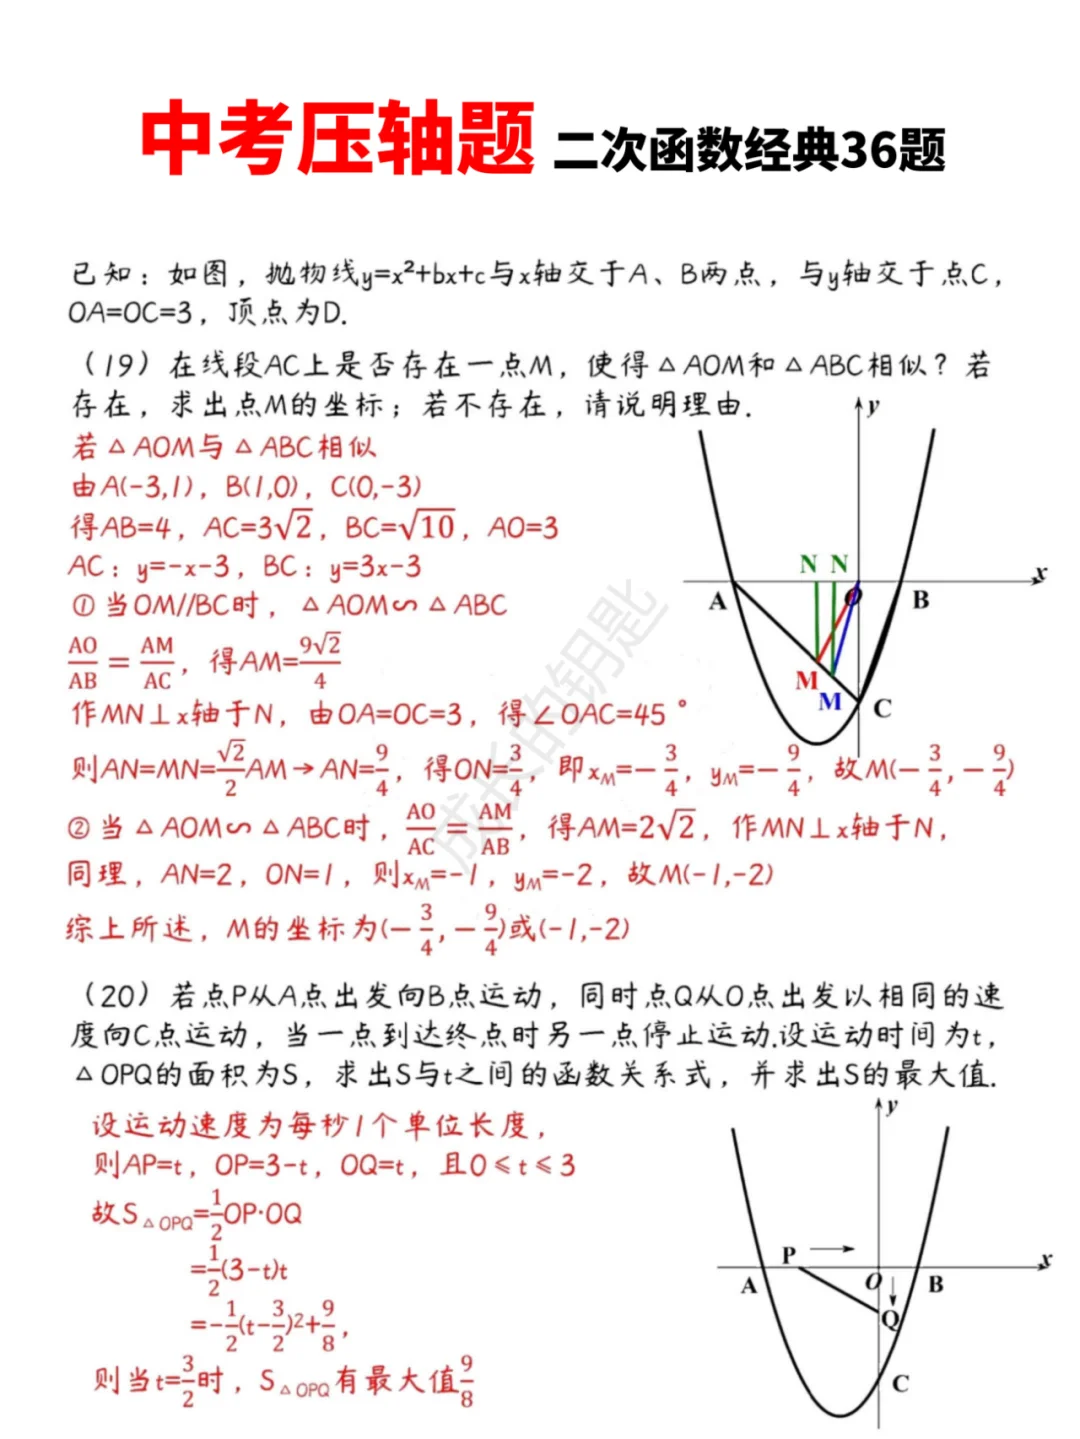 中考压轴题 二次函数经典36题
已知：如图，抛物线y=x²+bx+c与x轴交于A、B两点，与y轴交于点C，
OA=OC=3，顶点为D.
（19）在线段AC上是否存在一点M，使得△AOM和△ABC相似？若
存在，求出点M的坐标；若不存在，请说明理由.
若△AOM与△ABC相似
由A(-3,1)，B(1,0)，C(0,-3)
得AB=4，AC=3√2，BC=√10，AO=3
AC：y=-x-3，BC：y=3x-3
①当OM//BC时，△AOM∽△ABC
AO/AB=AM/AC，得AM=9√2/4
作MN⊥x轴于N，由OA=OC=3，得∠OAC=45°
则AN=MN=√2/2AM→AN=9/4，得ON=3/4，即xM=-3/4，yM=-9/4，故M(-3/4,-9/4)
②当△AOM∽△ABC时，AO/AC=AM/AB，得AM=2√2，作MN⊥x轴于N，
同理，AN=2，ON=1，则xM=-1，yM=-2，故M(-1,-2)
综上所述，M的坐标为(-3/4,-9/4)或(-1,-2)
y
x
N N
A
O
B
M
M
C
（20）若点P从A点出发向B点运动，同时点Q从O点出发以相同的速
度向C点运动，当一点到达终点时另一点停止运动.设运动时间为t，
△OPQ的面积为S，求出S与t之间的函数关系式，并求出S的最大值.
设运动速度为每秒1个单位长度，
则AP=t，OP=3-t，OQ=t，且0⩽t⩽3
故S△OPQ=1/2OP·OQ
=1/2(3-t)t
=-1/2(t-3/2)²+9/8，
则当t=3/2时，S△OPQ有最大值9/8
y
x
P
A
O
B
Q
C
成长的钥匙